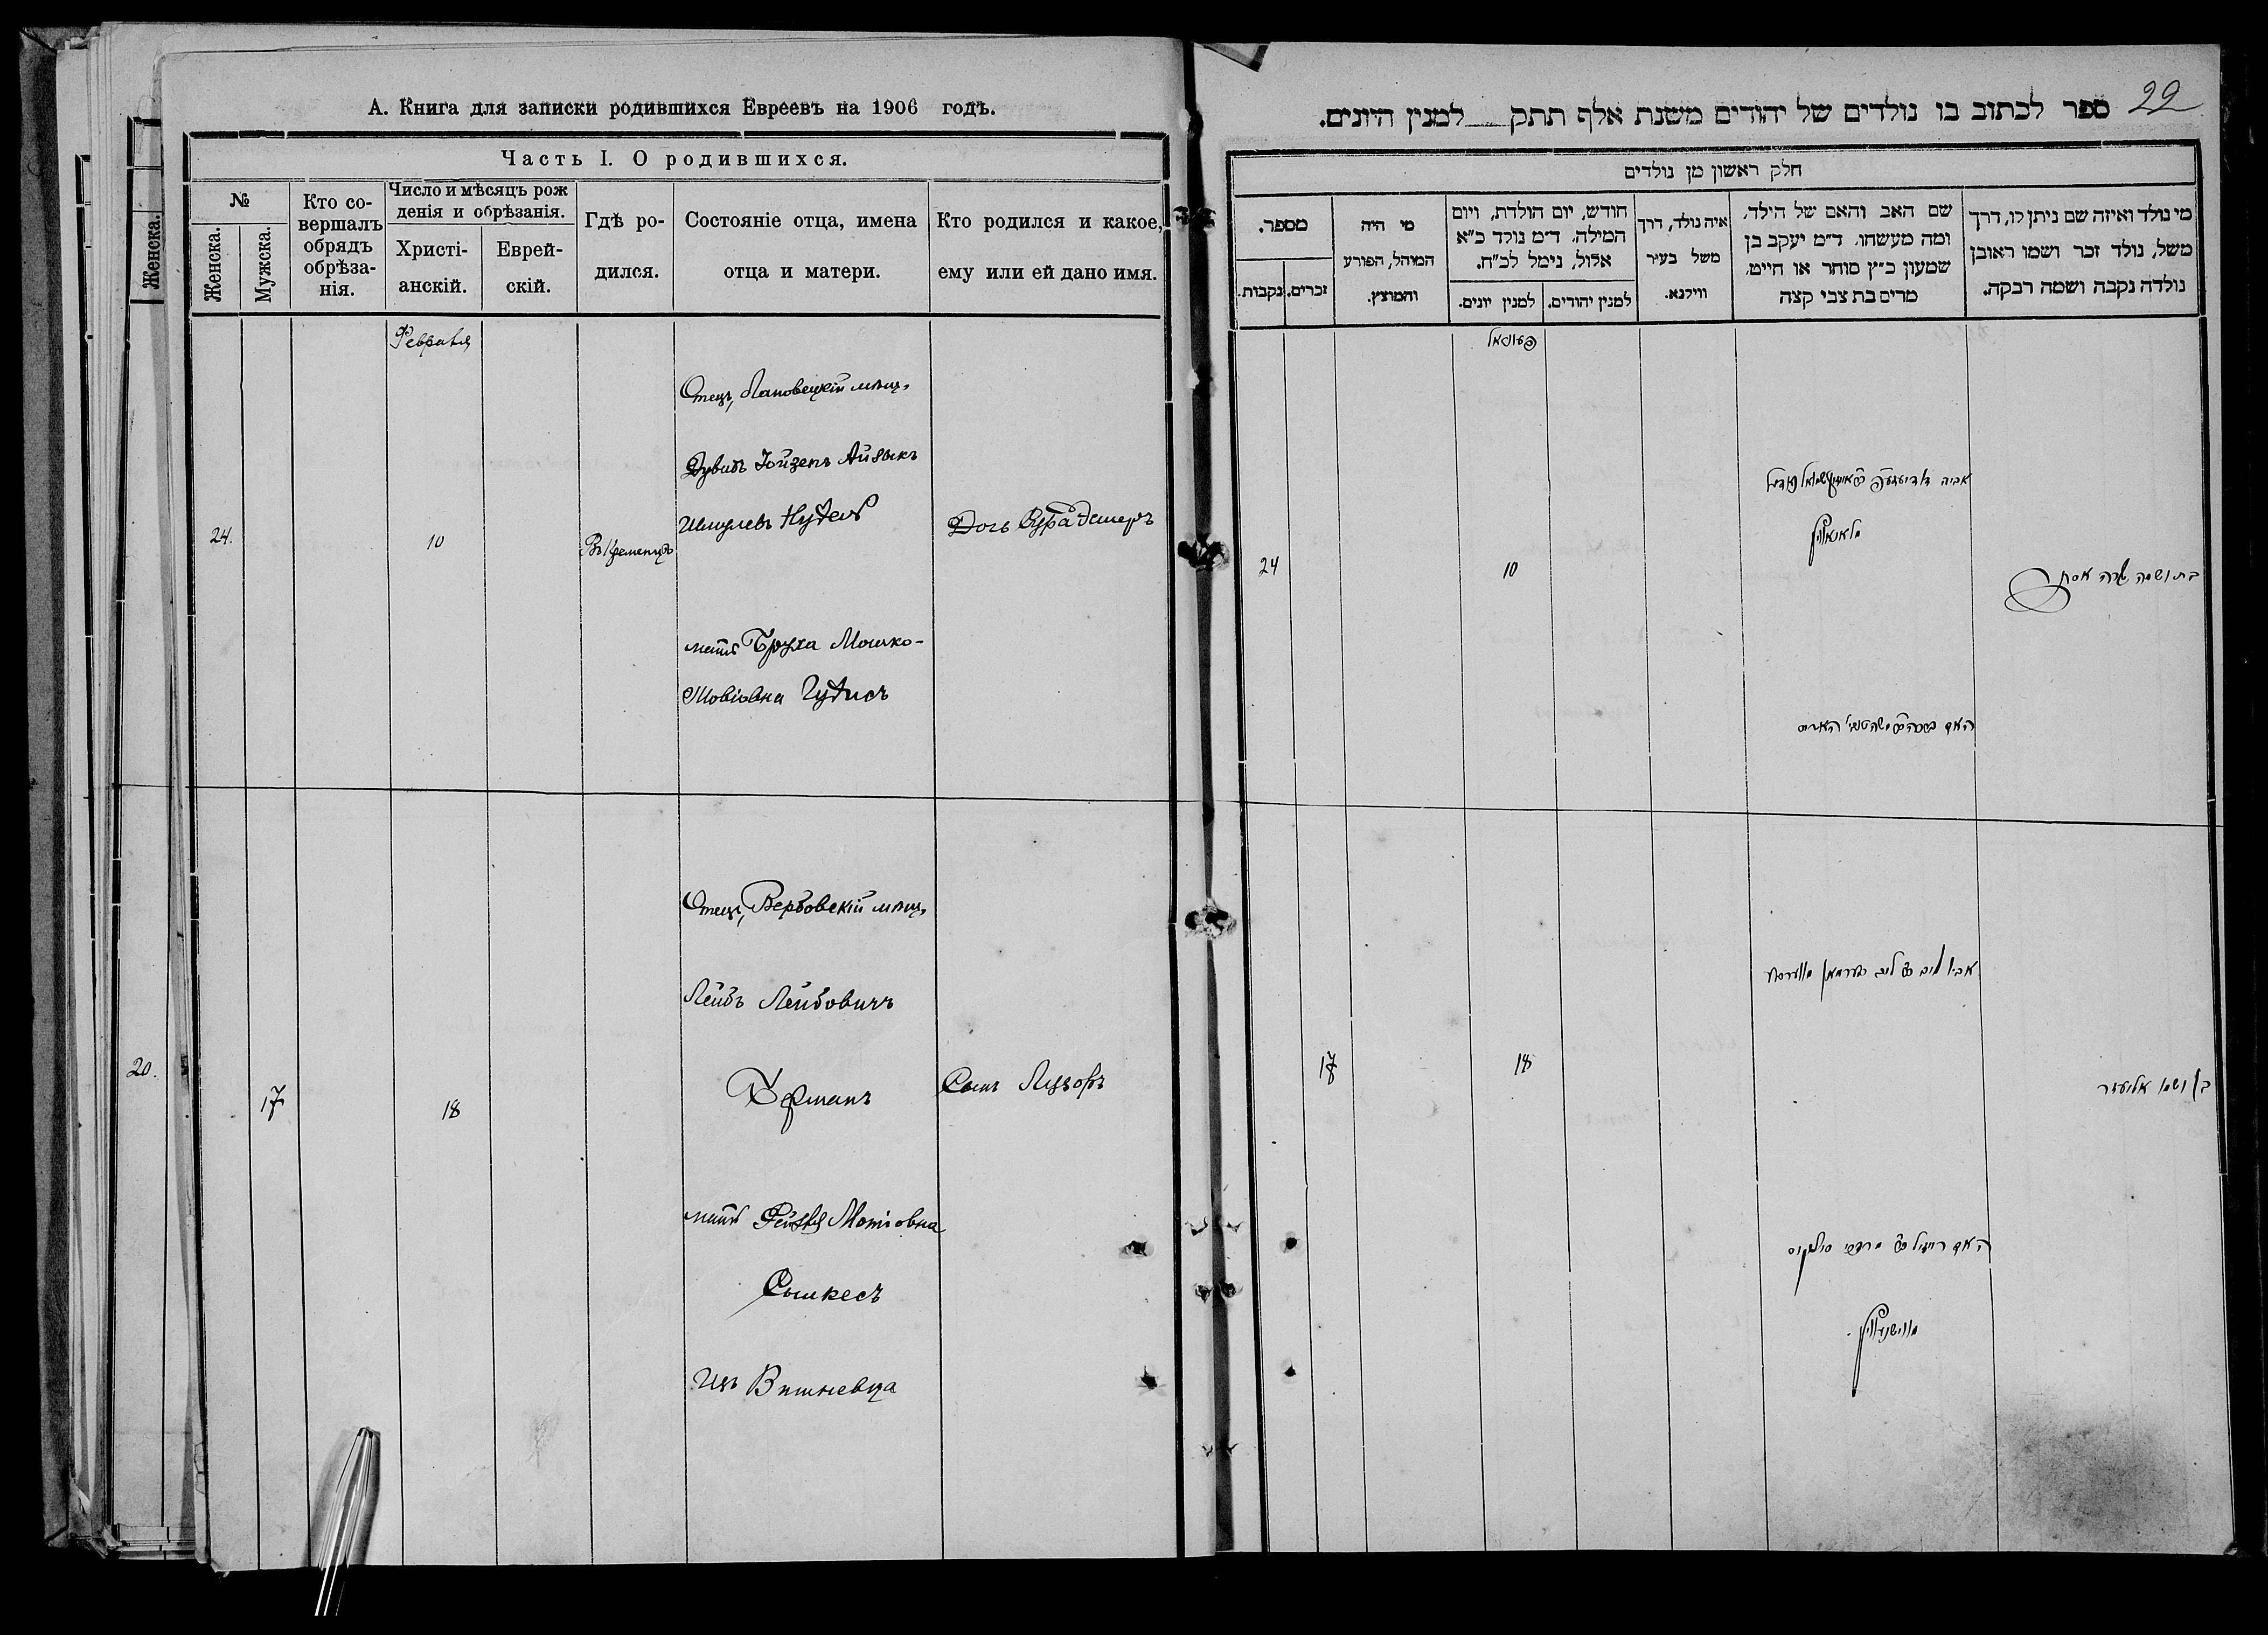 А. Книга для записки родившихся Евреевъ на 1906 годъ.
Часть I. О родившихся.
№
Женска.
Мужска.
Кто со-
вершалъ
обрядъ
обрѣза-
нія.
Число и мѣсяцъ рож
денія и обрѣзанія.
Христі-
анскій.
Еврей-
скій.
Гдѣ ро-
дился.
Состояніе отца, имена
отца и матери.
Кто родился и какое,
ему или ей дано имя.
Женска.
20.
Февраля
24.
10
Въ Кременцѣ
Отецъ, Лановецкій мѣщ.
Дувидъ Іойзепъ Айзыкъ
Шмулевъ
Дочь
мать Бруха Мошко-
Товіовна
17
18
Отецъ, Вербовскій мѣщ.
Лейбъ Лейбовичъ
Ферманъ
Сынъ Лузоръ
мать Рейзля Мотіовна
Сышкесъ
Изъ Вишневца
22
ספר לכתוב בו נולדים של יהודים משנת אלף תתק למנין היונים.
חלק ראשון מן נולדים
מי נולד ואיזה שם ניתן לו, דרך
משל, נולד זכר ושמו ראובן
נולדה נקבה ושמה רבקה.
שם האב והאם של הילד,
ומה מעשהו. ד״מ יעקב בן
שמעון כ״ץ סוחר או חייט,
מרים בת צבי קצה
איה נולד, דרך
משל בעיר
ווילנא.
חודש, יום הולדת, ויום
המילה. ד״מ נולד כ״א
אלול, נימל לכ״ח.
למנין יהודים.
למנין יונים.
מי היה
המוהל, הפורע
והמוצץ.
מספר.
זכרים.
נקבות.
24
10
אביה
בת ושמה שרה אסתר
האם
17
18
אביו ליב ב״ר ליב פערמאן
בן ושמו אליעזר
האם רייזיל